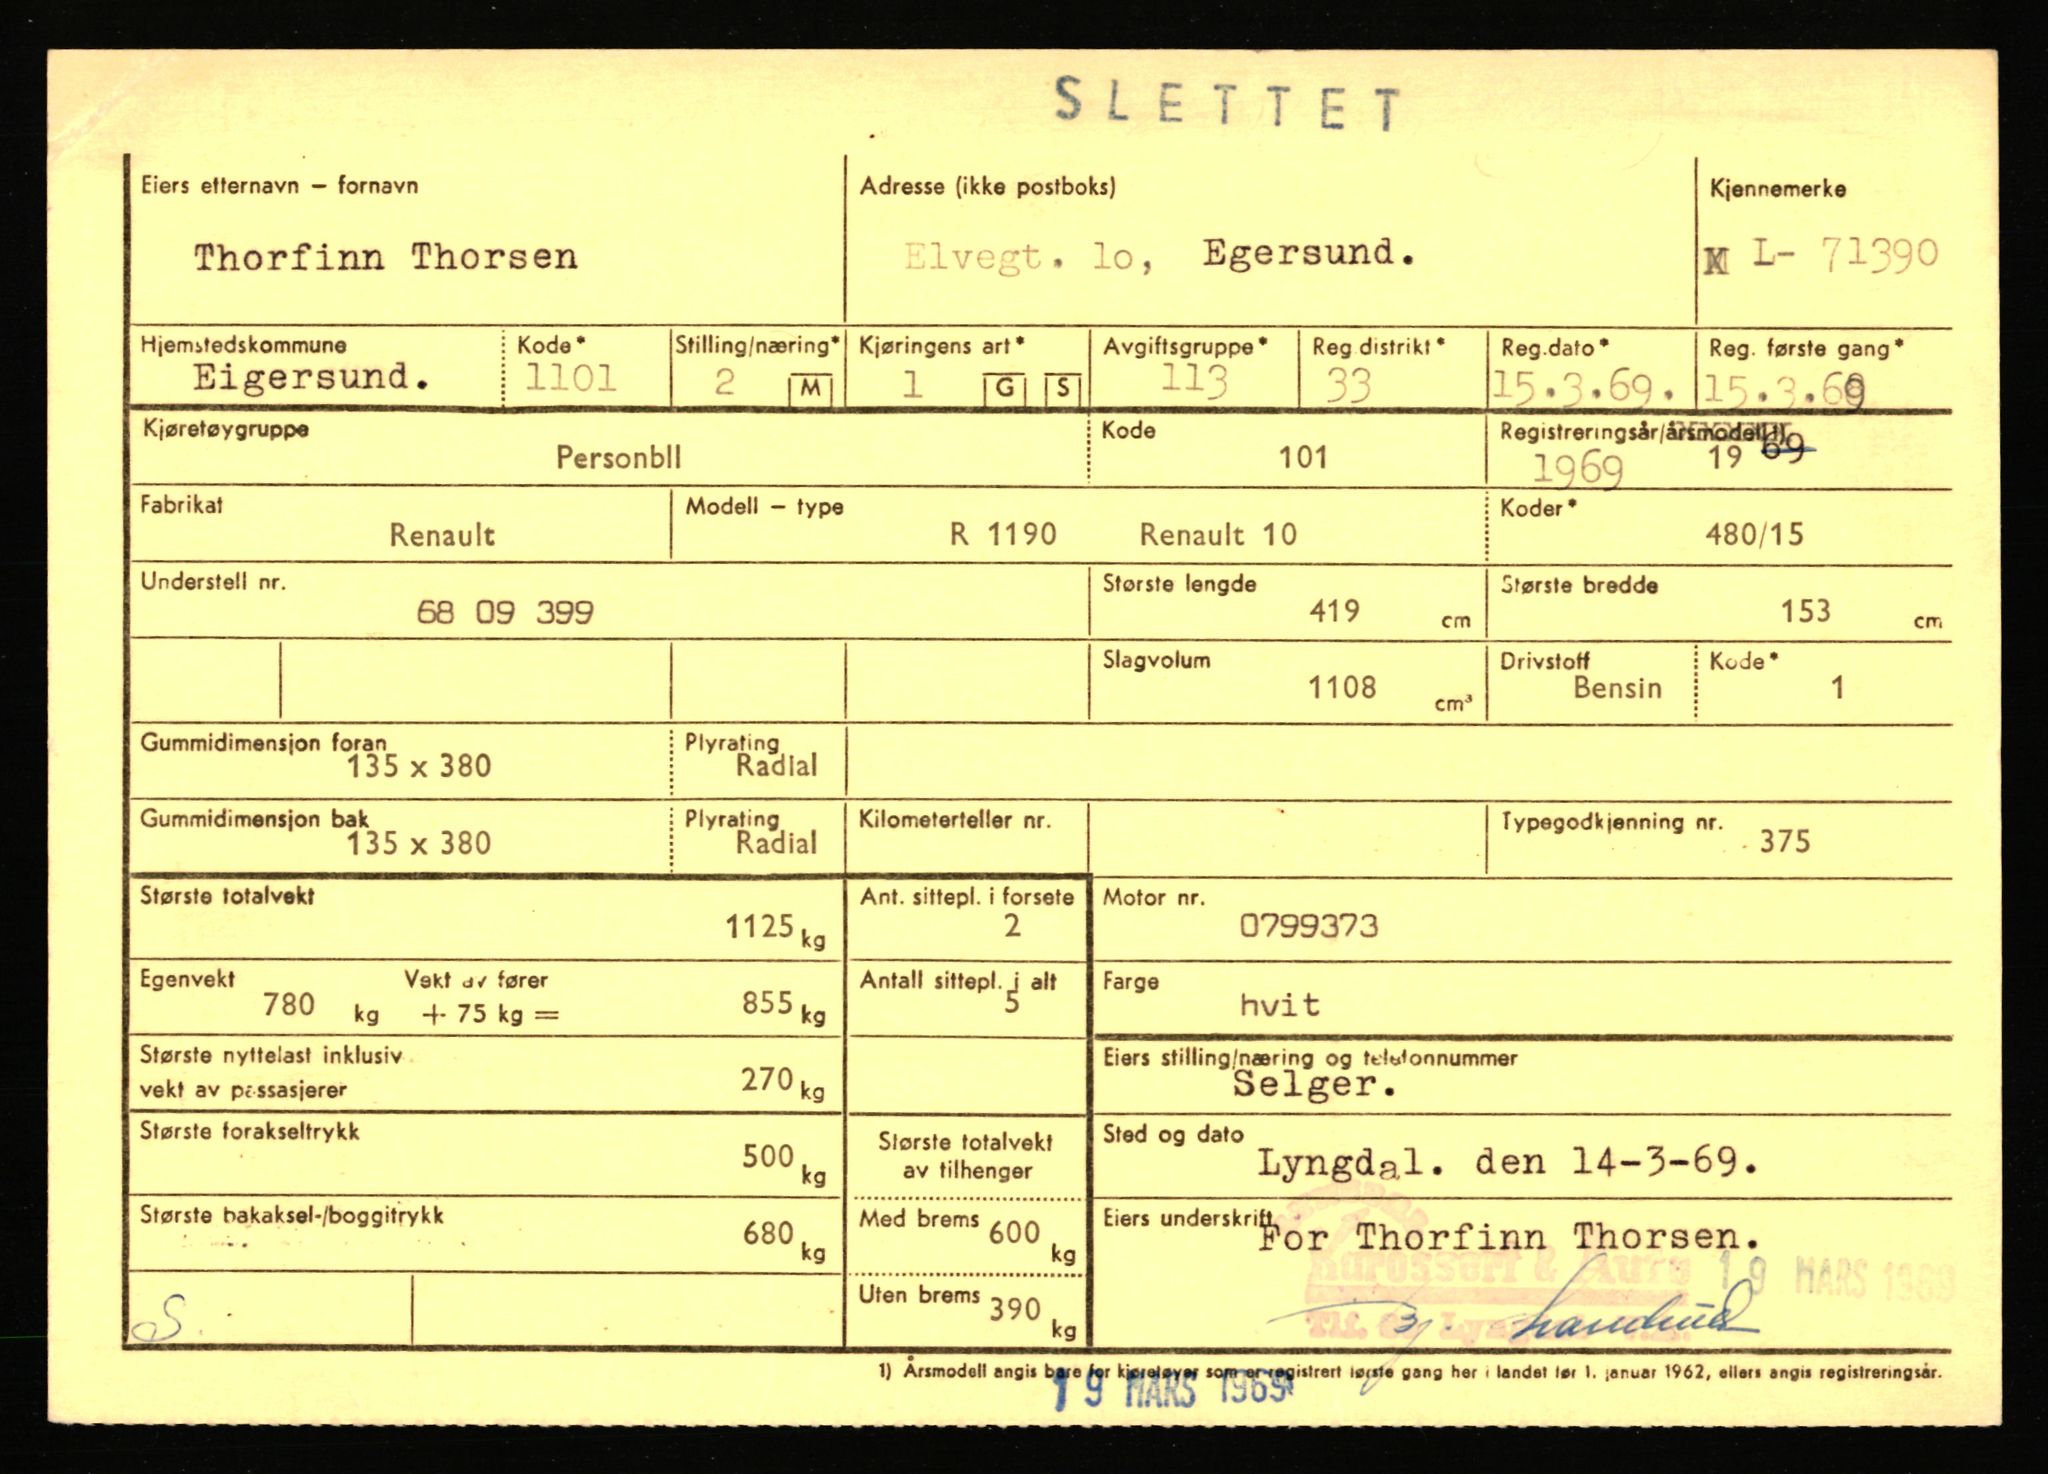 SLETTET
Eiers etternavn – fornavn
Adresse (ikke postboks)
Kjennemerke
Thorfinn Thorsen
Elvegt. lo, Egersund.
L- 71390
Hjemstedskommune
Kode*
Stilling/næring*
Kjøringens art*
Avgiftsgruppe*
Reg.distrikt*
Reg.dato*
Reg. første gang*
Eigersund.
1101
2
M
1
G
S
113
33
15.3.69.
15.3.69
Kjøretøygruppe
Personbil
Kode
101
Registreringsår/årsmodell 1)
1969
19 69
Fabrikat
Renault
Modell – type
R 1190
Renault 10
Koder*
480/15
Understell nr.
68 09 399
Største lengde
419 cm
Største bredde
153 cm
Slagvolum
1108 cm³
Drivstoff
Bensin
Kode*
1
Gummidimensjon foran
135 x 380
Plyrating
Radial
Gummidimensjon bak
135 x 380
Plyrating
Radial
Kilometerteller nr.
Typegodkjenning nr.
375
Største totalvekt
1125 kg
Ant. sittepl. i forsete
2
Motor nr.
0799373
Egenvekt
780 kg
Vekt av fører
+ 75 kg =
855 kg
Antall sittepl. i alt
5
Farge
hvit
Største nyttelast inklusiv
vekt av passasjerer
270 kg
Eiers stilling/næring og telefonnummer
Selger.
Største forakseltrykk
500 kg
Største totalvekt
av tilhenger
Sted og dato
Lyngdal. den 14-3-69.
Største bakaksel-/boggitrykk
680 kg
Med brems 600 kg
Eiers underskrift
For Thorfinn Thorsen.
Karosseri & Auto
19 MARS 1969
Uten brems 390 kg
S.
Tlf.
1) Årsmodell angis bare for kjøretøyer som er registrert første gang her i landet før 1. januar 1962, ellers angis registreringsår.
19 MARS 1969